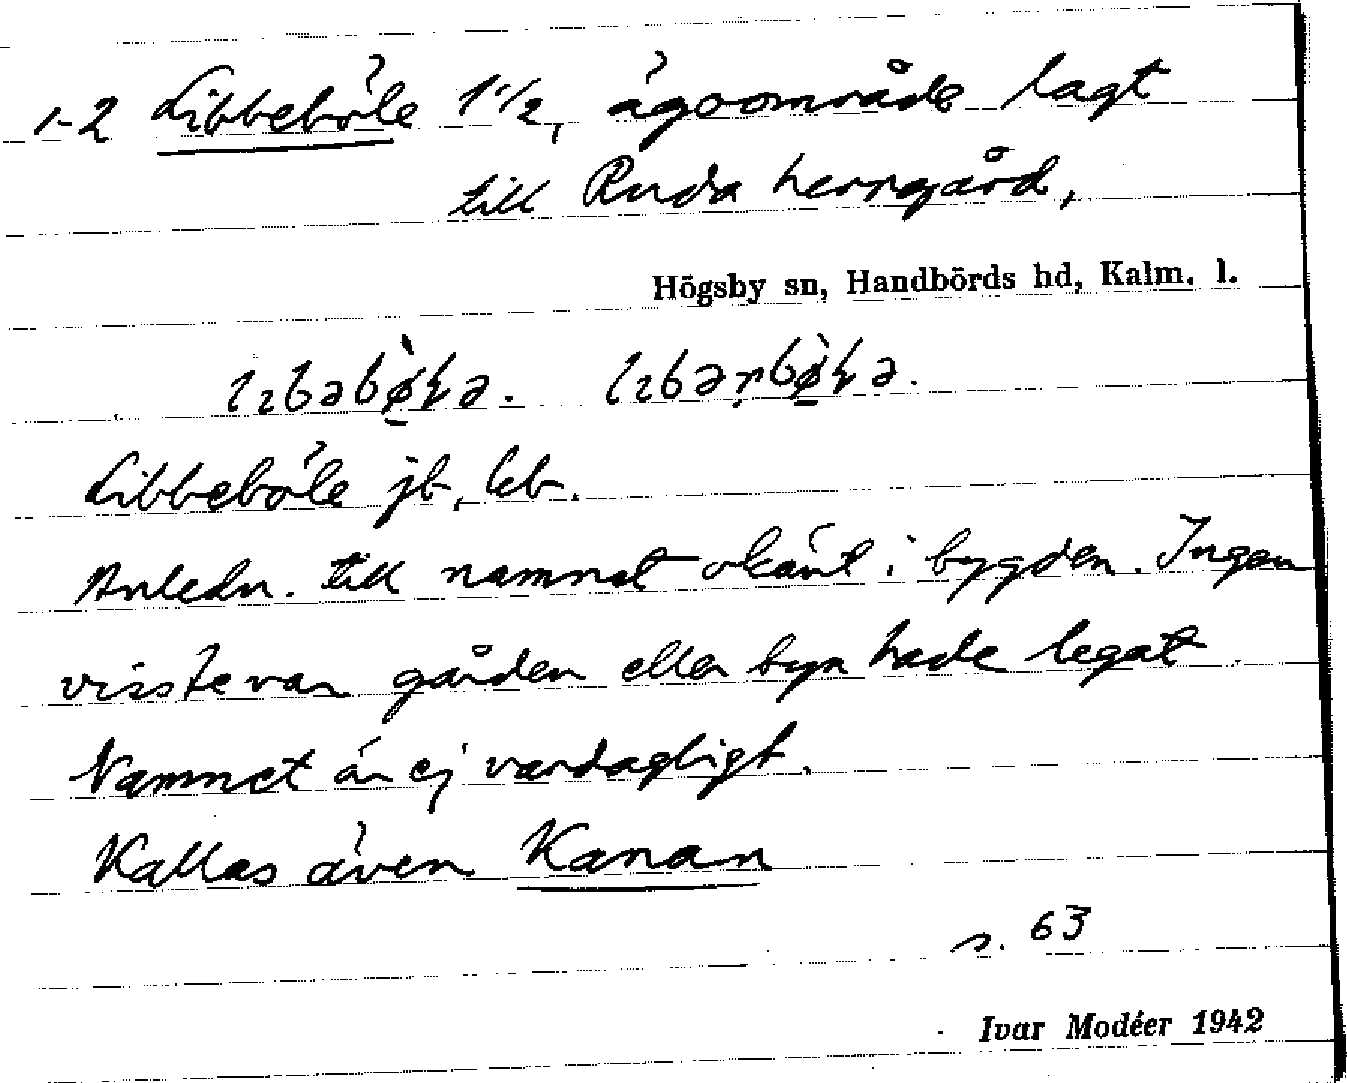 1-2 Libbeböle 1 1/2, ägoområde lagt
till Ruda herrgård,
Högsby sn, Handbörds hd, Kalm. l.
Libbeböle jb, kb.
Anledn. till namnet okänt i bygden. Ingen
visste var gården eller byn hade legat
Namnet är ej vardagligt.
Kallas även Kanan
s. 63
Ivar Modéer 1942